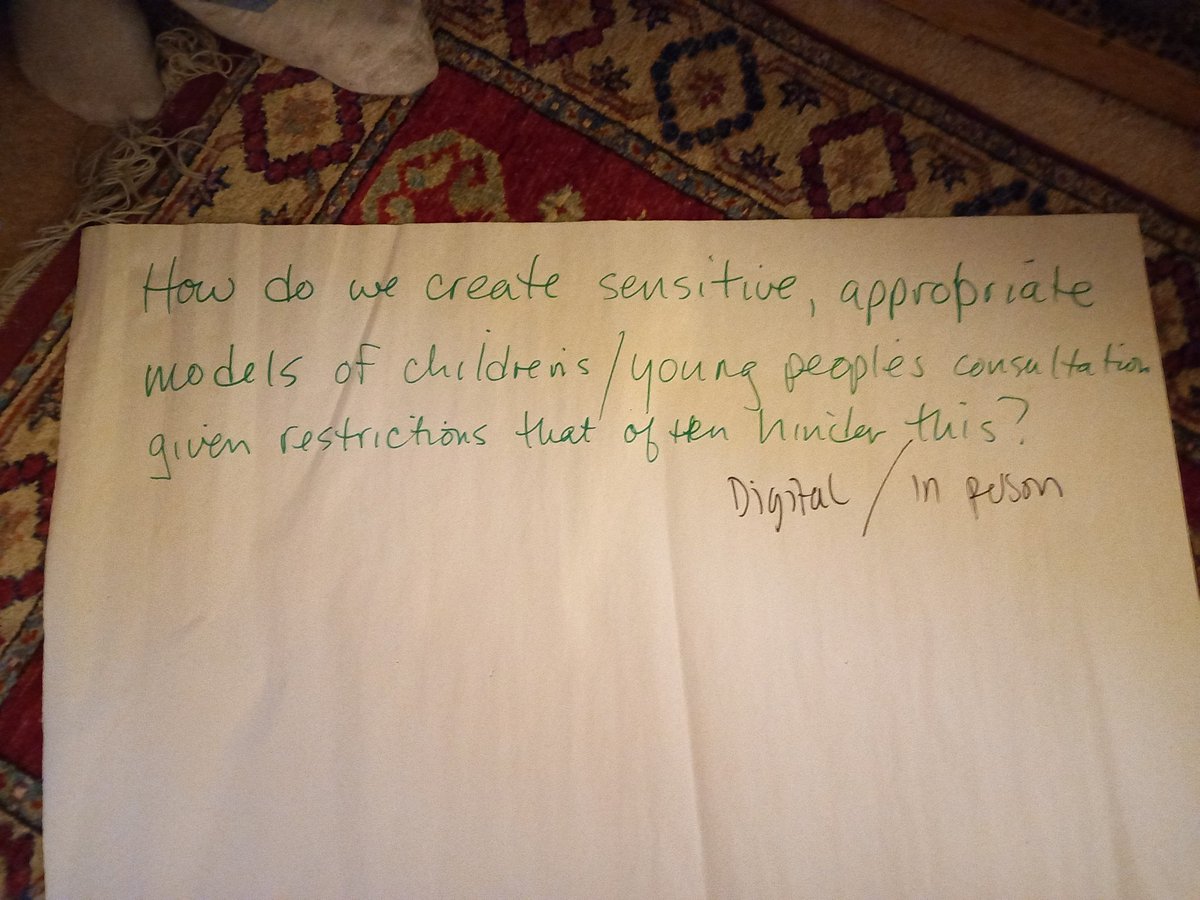 How do we create sensitive, appropriate
models of children's/young people's consultation
given restrictions that often hinder this?
Digital / in person